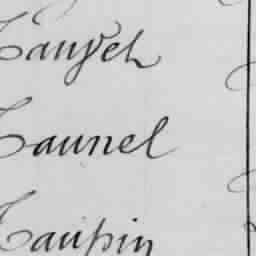 Tauveh
Taunel
Taupin